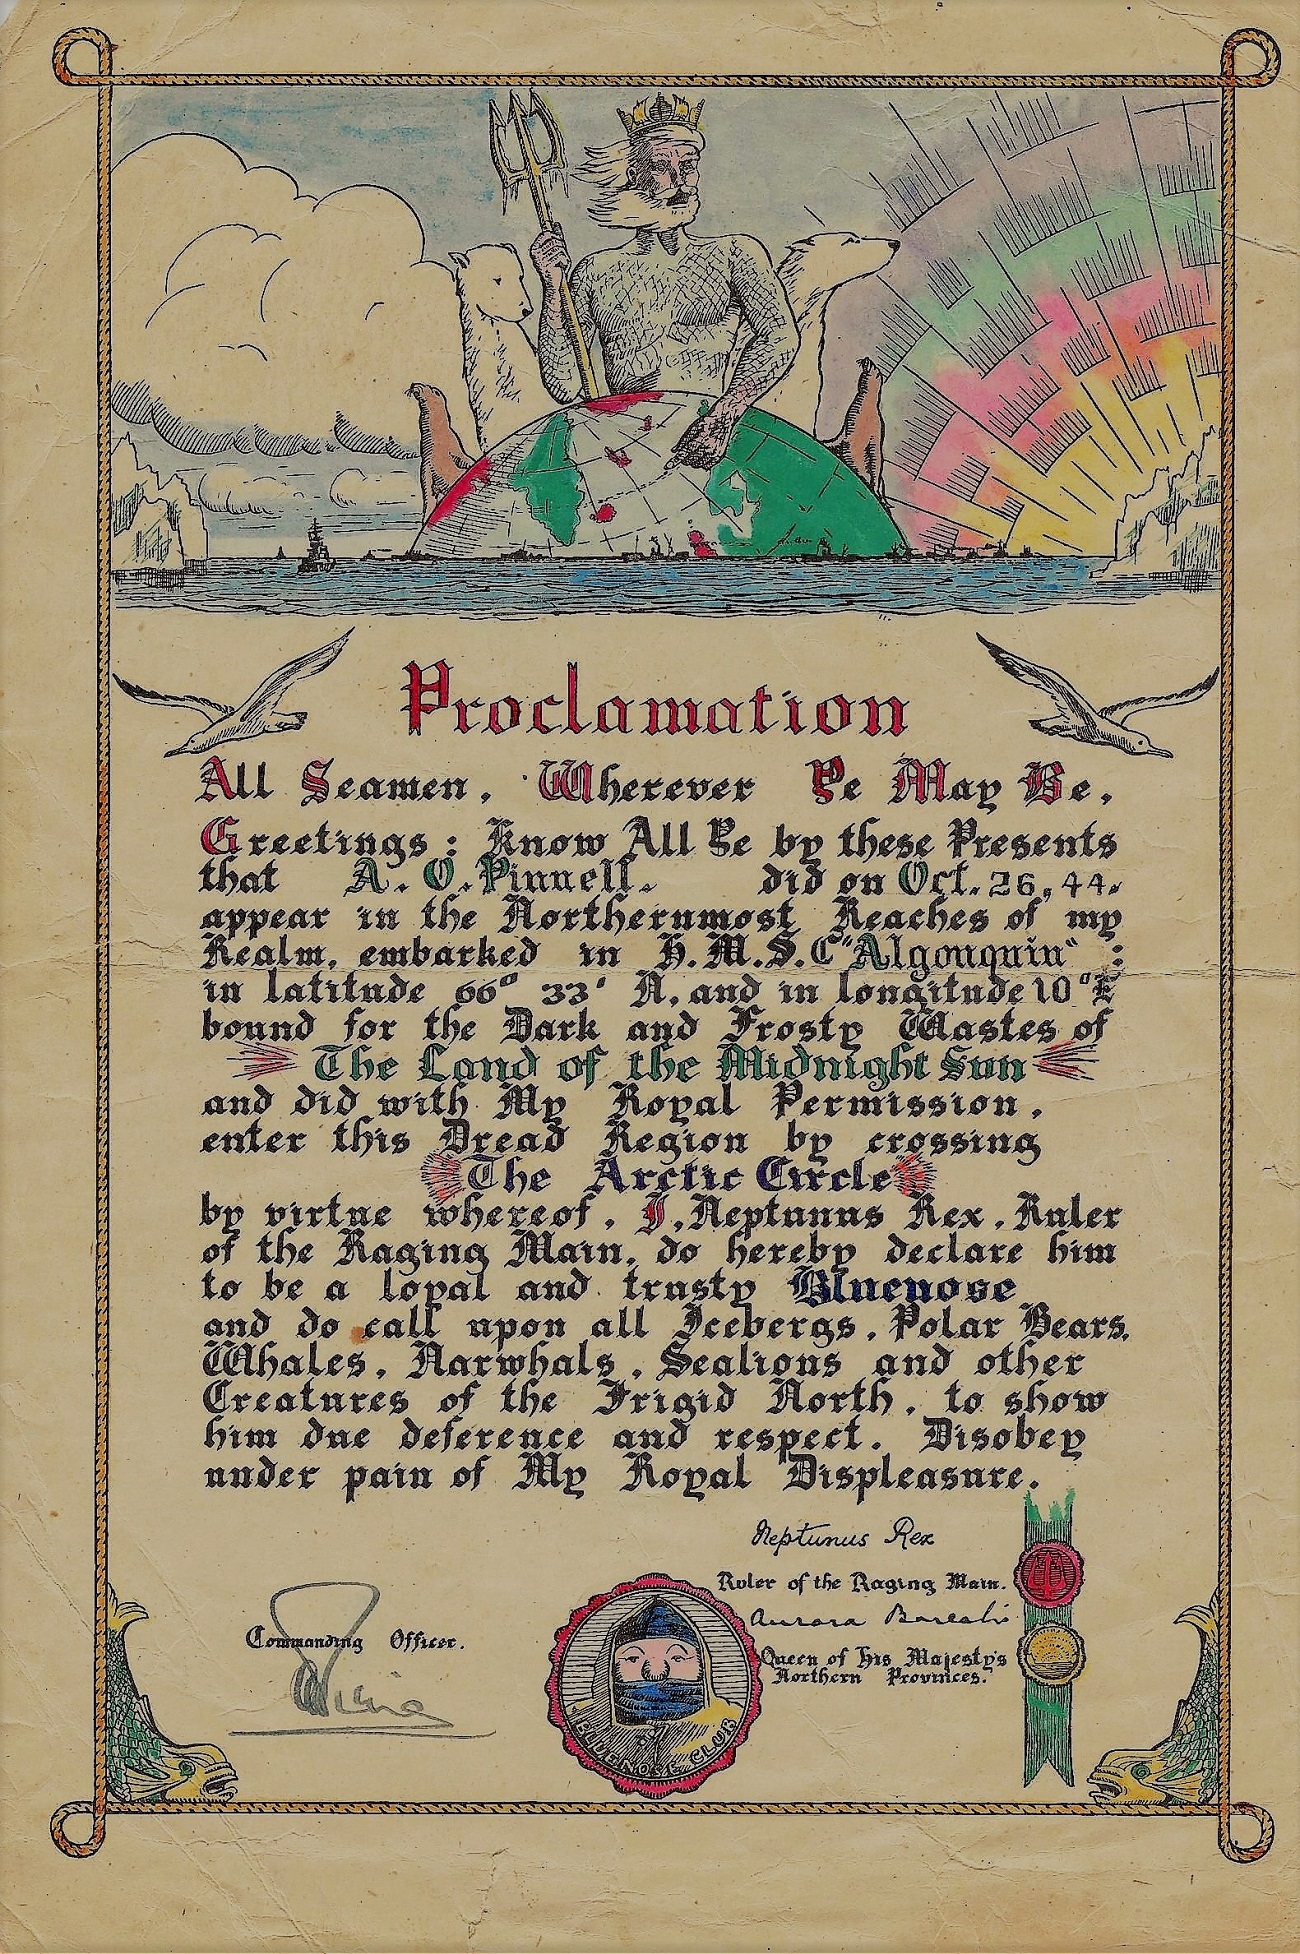 Proclamation
All Seamen, Wherever Ye May Be,
Greetings: Know All Ye by these Presents
that A. O. Pinnell. did on Oct. 26, 44.
appear in the Northernmost Reaches of my
Realm, embarked in H.M.S.C "Algonquin" :
in latitude 66° 33' N, and in longitude 10°E
bound for the Dark and Frosty Wastes of
The Land of the Midnight Sun
and did with My Royal Permission,
enter this Dread Region by crossing
The Arctic Circle
by virtue whereof, I, Neptunus Rex, Ruler
of the Raging Main, do hereby declare him
to be a loyal and trusty Bluenose
and do call upon all Icebergs, Polar Bears,
Whales, Narwhals, Sealions and other
Creatures of the Frigid North, to show
him due deference and respect. Disobey
under pain of My Royal Displeasure.
Neptunus Rex
Ruler of the Raging Main.
Aurora Borealis
Queen of His Majesty's
Northern Provinces.
Commanding Officer.
BLUENOSE CLUB